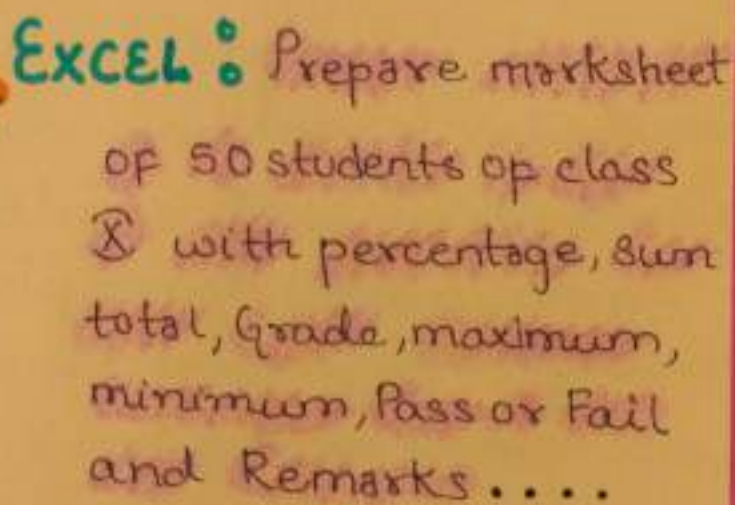 EXCEL : Prepare marksheet
of 50 students of class
X with percentage, sum
total, Grade, maximum,
minimum, Pass or Fail
and Remarks....